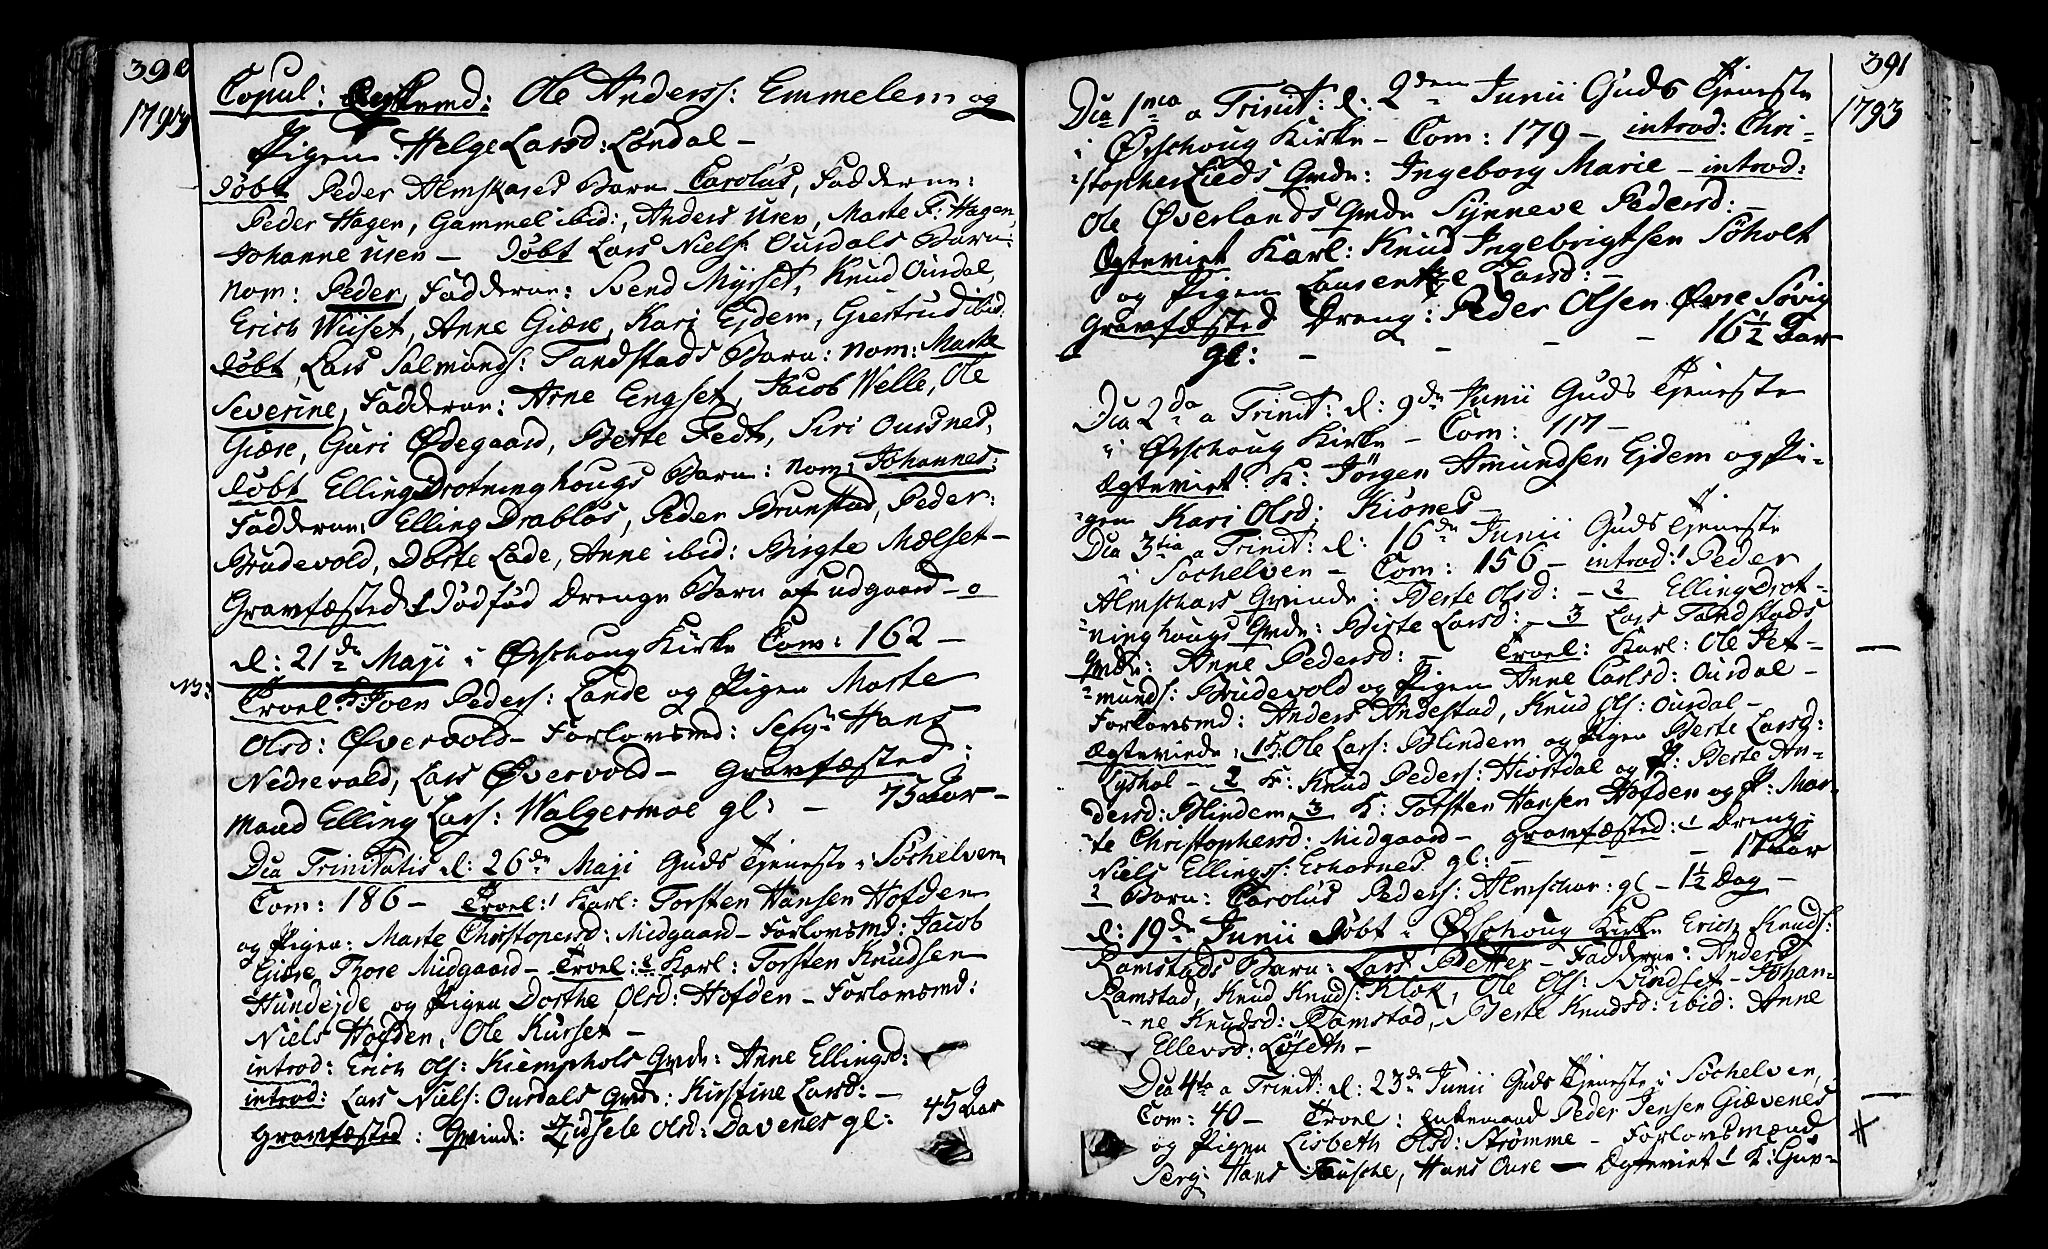 390
1793
Copul: Ole Anderss: Emmelem og
Pigen: Helge Larsd: Løndal –
døbt Peder Almskares Barn Carolus, Fadderne:
Peder Hagen, Gammel ibid:, Anders Uren, Marte F: Hagen,
Johanne Uren – døbt Lars Niels: Ourdals Barn:
Nom: Peder, Fadderne: Svend Mysset, Knud Ourdal,
Erich Wiiset, Anne Giære, Kari Ejdem, Giertrud ibid:
døbt, Lars Salmunds: Tandstads Barn: Nom: Marte
Severine, Fadderne: Arne Engset, Jacob Welle, Ole
Giære, Guri Ødegaard, Berte Fedt, Siri Oursnes,
døbt Elling Drotninghougs Barn: Nom: Johannes:
Fadderne: Elling Drabløs, Peder Brunstad, Peder:
Brudevold, Dorte Lade, Anne ibid: Birgte Mælset –
Gravfæsted 1 dødfød Drenge Barn af udgaard – 0
d: 21de Maji i Ørschoug Kirke Com: 162 –
NB: Trvel: K: Joen Peders: Lande og Pigen Marte
Olsd: Øvervold – Forlovsmd: Sergt: Hans
Nedrevold, Lars Øvervold – Gravfæsted:
Mand Elling Lars: Walgermoe gl: – 75 Aar –
Dca Trinitatis d: 26de Maji Guds Tjeneste i Søchelven
Com: 186 – Trvel: 1 Karl: Torsten Hansen Hofden
og Pigen: Marte Christopersd: Midgaard – Forlovsmd: Jacob
Giære, Thore Midgaard – Trvel: 2 Karl: Torsten Knudsen
Hundejde og Pigen Dorthe Olsd: Hofden – Forlovsmd:
Niels Hofden, Ole Kurset –
introd: Erich Ols: Kiemphols Qvnde: Anne Ellingsd:
introd: Lars Niels: Ourdals Qvnde: Kirstine Larsd: –
gravfæsted: Qvinde: Zidsele Olsd: Davenes gl: 45 Aar
391
1793
Dca 1ma a Trinit: d: 2den Junii Guds Tjeneste
i Ørschoug Kirke – Com: 179 – introd: Chri-
stopher Lieds Qvnde: Ingeborg Marie – introd:
Ole Øverlands Qvnde Synneve Pedersd: –
Ægteviet Karl: Knud Ingebrigtsen Søholt
og Pigen Laurentze Larsd: –
Gravfæsted Dreng: Peder Olsen Øvre Søvig
gl: – – – – 16½ Aar
Dca 2da a Trinit: d: 9de Junii Guds Tjeneste
i Ørschoug Kirke – Com: 117 –
Ægteviet: K: Jørgen Amundsen Ejdem og Pi-
gen Kari Olsd: Kiønes –
Dca 3tia a Trinit: d: 16de Junii Guds Tjeneste
i Søchelven – Com: 156 – introd: 1 Peder
Almschars Qvinde: Berte Olsd: – 2 Elling Drot-
ninghougs Qvnde: Birte Larsd: – 3 Lars Tandstads
Qvnde: Anne Pedersd: – Trvel: Karl: Ole Pet-
munds: Brudevold og Pigen Anne Carlsd: Ourdal –
Forlovsmd: Anders Andestad, Knud Ols: Ourdal –
Ægteviede: 1 Ole Lars: Blindem og Pigen Berte Larsd:
Lyshol – 2 K: Knud Peders: Hiortdal og P: Berte An-
dersd: Blindem 3 K: Torsten Hansen Hofden og P: Mar-
te Christophersd: Midgaard – gravfæsted: 1 Dreng
Niels Ellings: Echornes gl: – – – 17 Aar
2 Barn: Carolus Peders: Almschar: gl – 1½ Dag –
d: 19de Junii døbt i Ørschoug Kirke Erich Knuds:
Ramstads Barn: Lars Petter – Fadderne: Anders
Ramstad, Knud Knuds: Klok, Ole Ols: Vindset – Johan-
ne Knudsd: Ramstad, Berte Knudsd: ibid: Anne
Ellevsd: Løseth –
Dca 4ta a Trinit: d: 23de Junii Guds Tjeneste i Søchelven,
Com: 40 – Trvel: Enkemand Peder Jensen Giævenes
og Pigen Lisbeth Olsd: Strømme – Forlovsmænd
Serg: Hans Tausche, Hans Oure – Ægteviet 1 K: Gun-